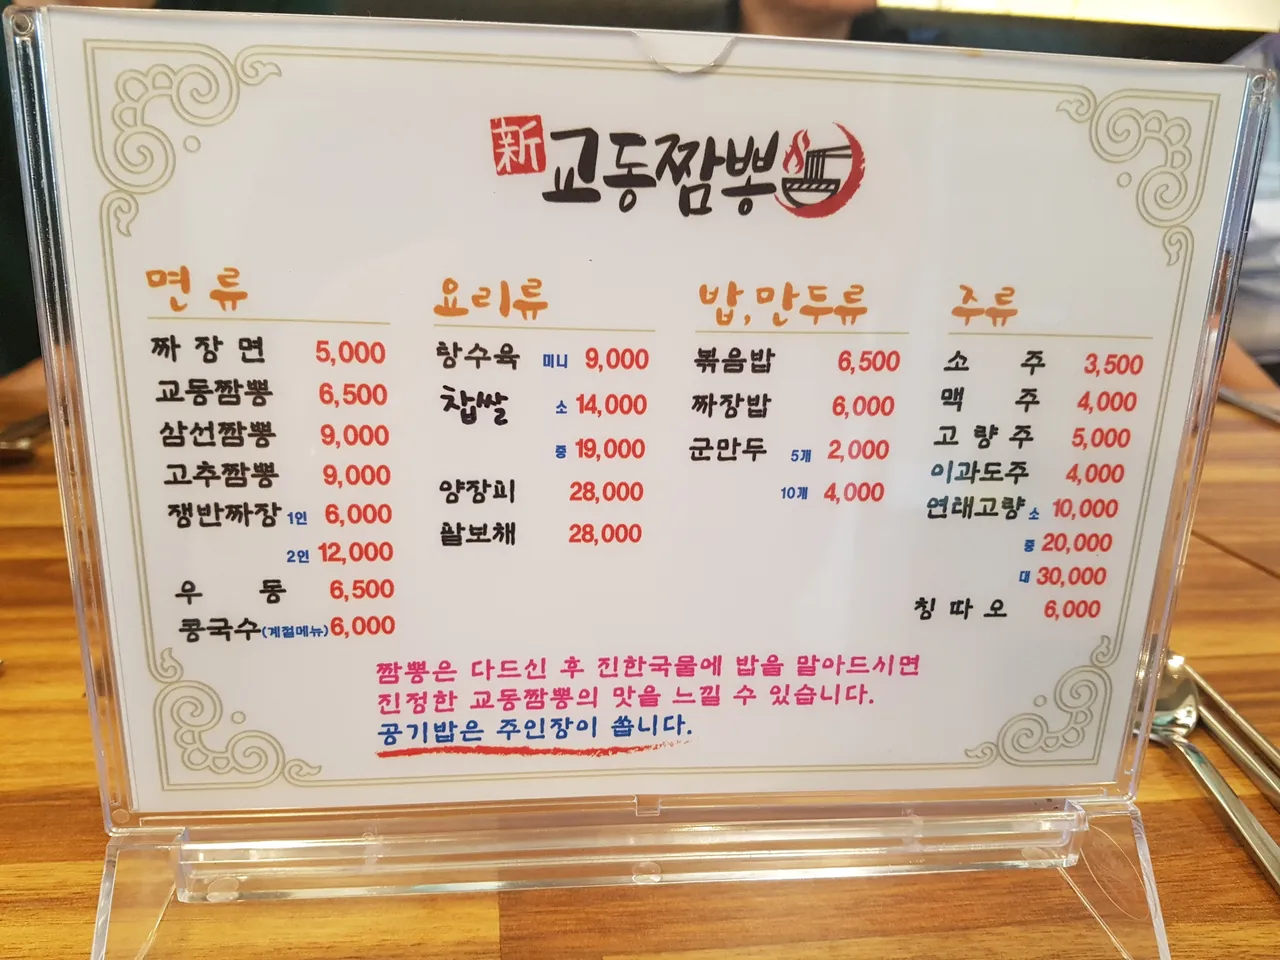 新 교동짬뽕
면류
짜장면 5,000
교동짬뽕 6,500
삼선짬뽕 9,000
고추짬뽕 9,000
쟁반짜장 1인 6,000
2인 12,000
우동 6,500
콩국수(계절메뉴) 6,000
요리류
탕수육 미니 9,000
찹쌀 소 14,000
중 19,000
양장피 28,000
팔보채 28,000
밥,만두류
볶음밥 6,500
짜장밥 6,000
군만두 5개 2,000
10개 4,000
주류
소주 3,500
맥주 4,000
고량주 5,000
이과도주 4,000
연태고량 소 10,000
중 20,000
대 30,000
칭따오 6,000
짬뽕은 다드신 후 진한국물에 밥을 말아드시면
진정한 교동짬뽕의 맛을 느낄 수 있습니다.
공기밥은 주인장이 쏩니다.